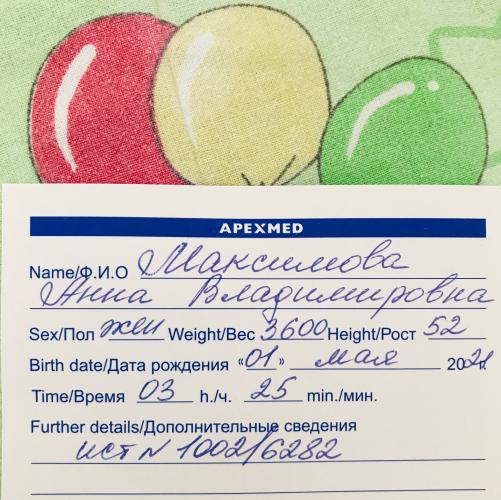 APEXMED
Name/Ф.И.О Максимова
Анна Владимировна
Sex/Пол жен Weight/Вес 3600 Height/Рост 52
Birth date/Дата рождения «01» мая 2021
Time/Время 03 h./ч. 25 min./мин.
Further details/Дополнительные сведения
ист N 1002/6282